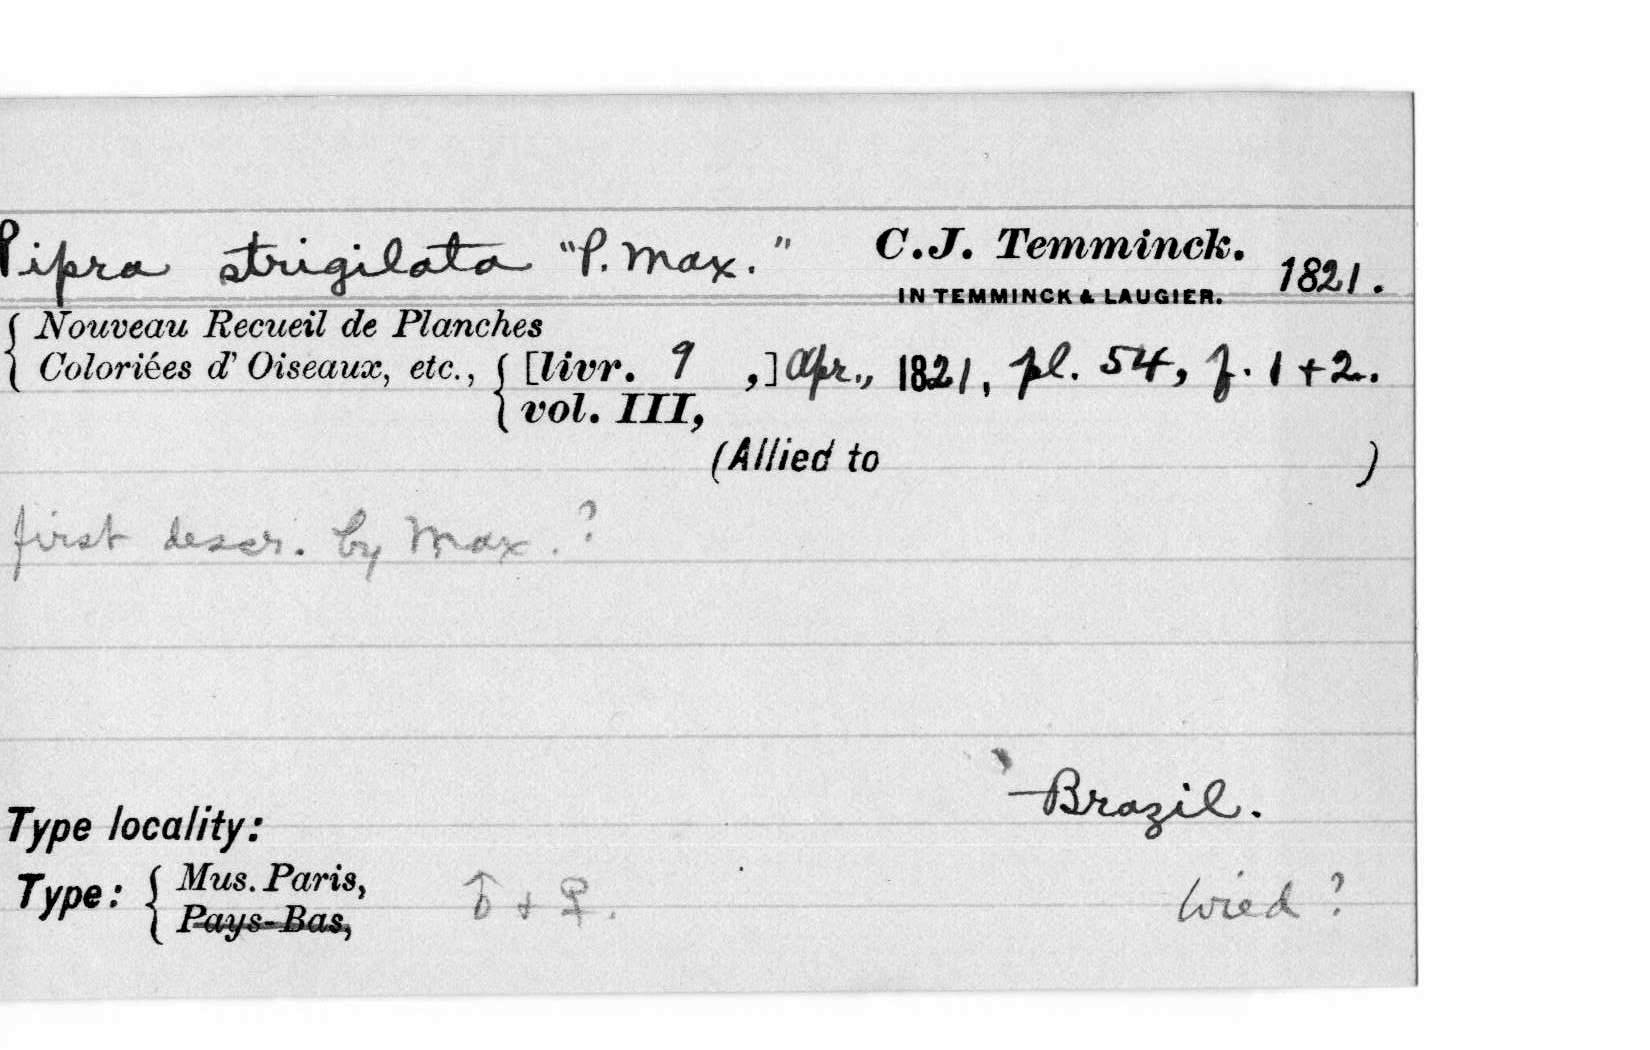 Pipra strigilata "P. Max." C.J. Temminck. 1821.
IN TEMMINCK & LAUGIER.
Nouveau Recueil de Planches
Coloriées d' Oiseaux, etc., [livr. 9 ,] Apr., 1821, pl. 54, f. 1 + 2.
vol. III,
(Allied to )
first descr. by Max. ?
Brazil.
Type locality:
Type: Mus. Paris,
Pays-Bas, ♂ + ♀. Wied ?